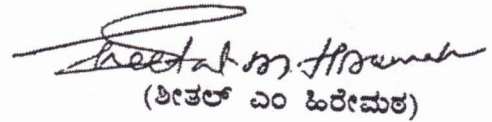 Sheetal. M. Hiremath
(ಶೀತಲ್ ಎಂ ಹಿರೇಮಠ)